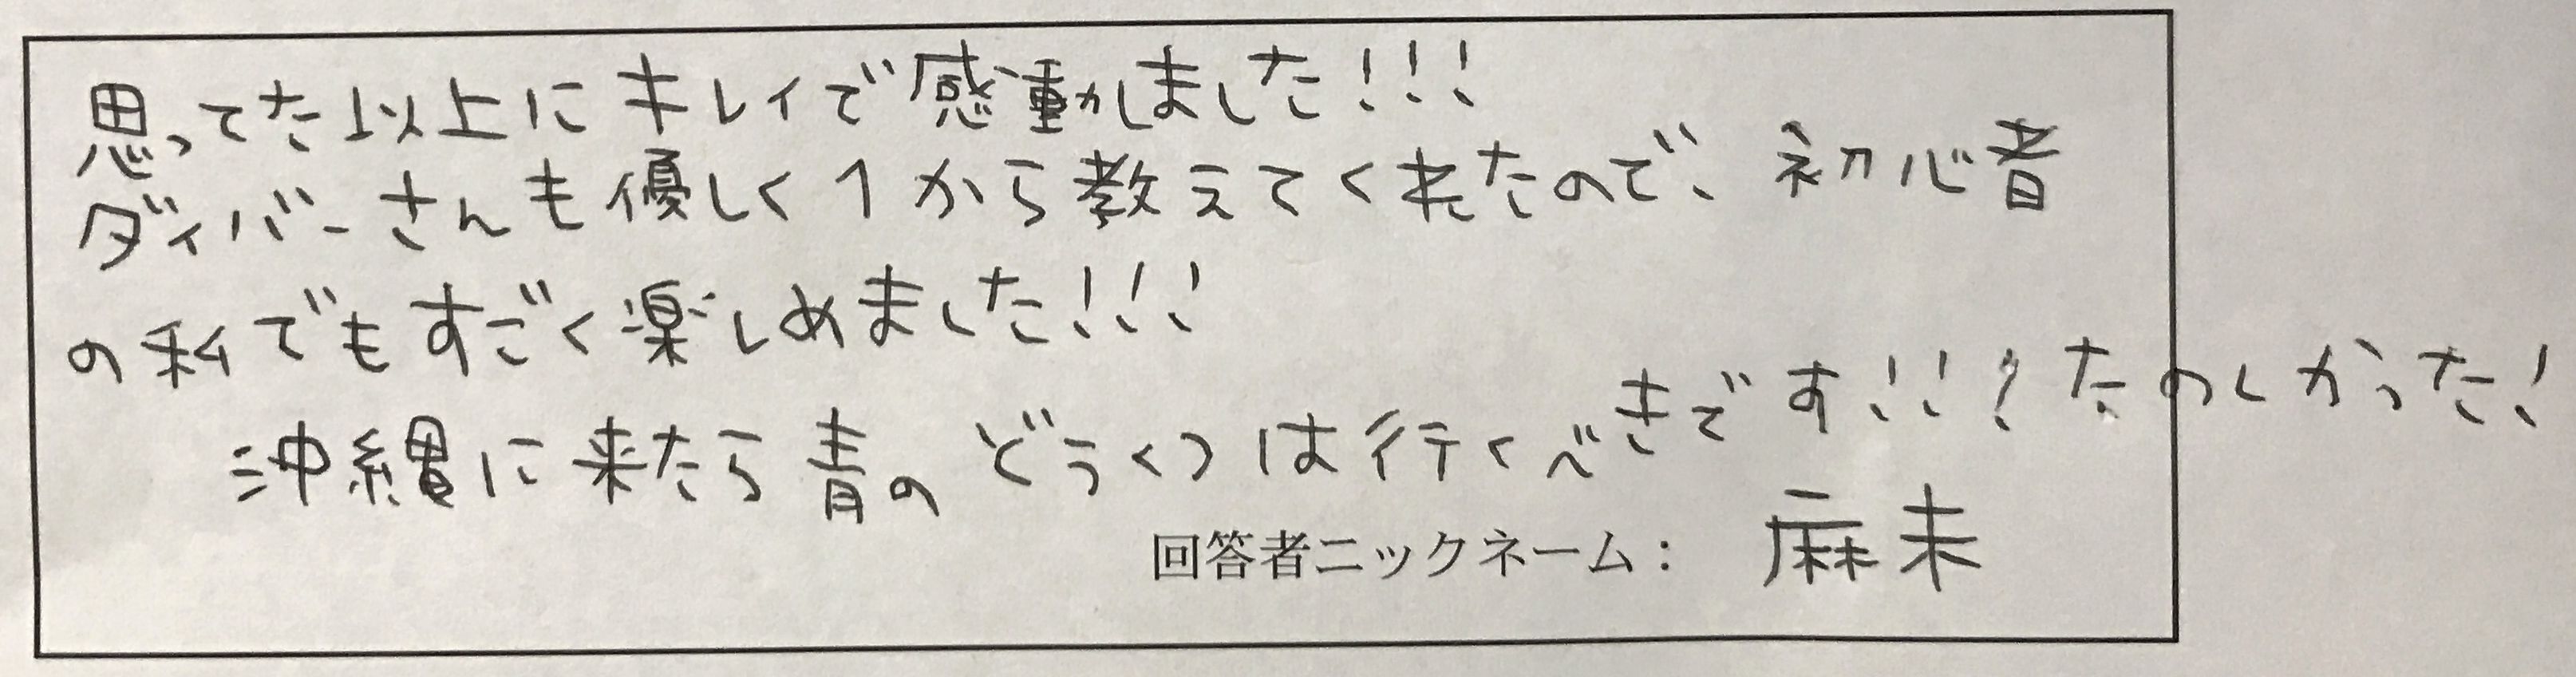 思ってた以上にキレイで感動しました!!!
ダイバーさんも優しく1から教えてくれたので、初心者
の私でもすごく楽しめました!!!
沖縄に来たら青のどうくつは行くべきです!!!たのしかった!
回答者ニックネーム: 麻未